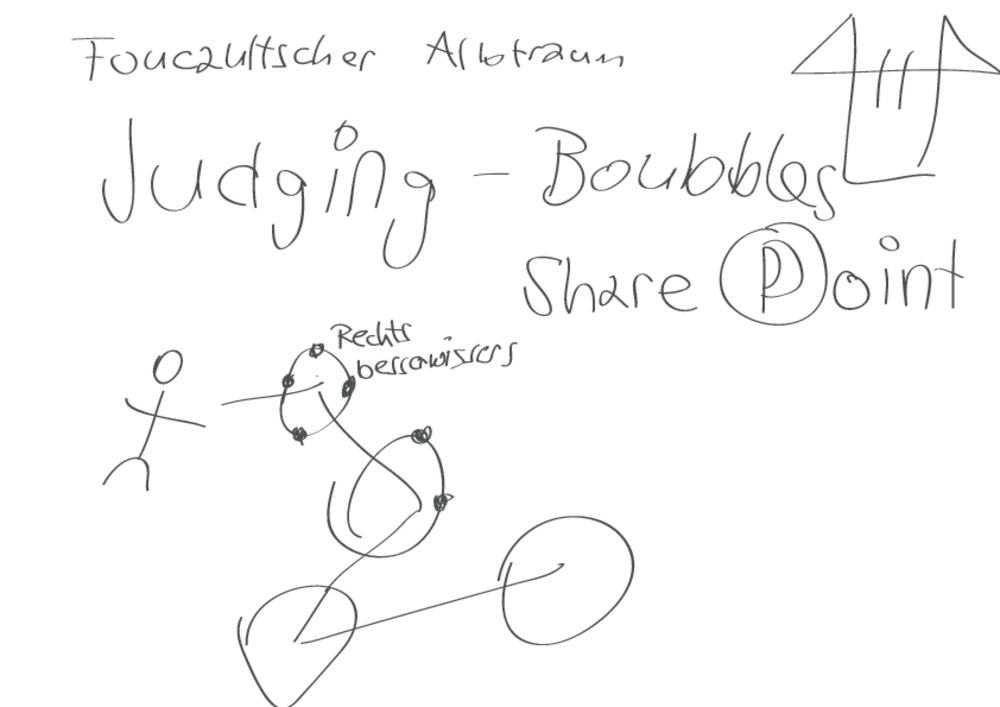 Foucaultscher Albtraum
Judging - Boubbles
Share Point
Rechts
besserwissers